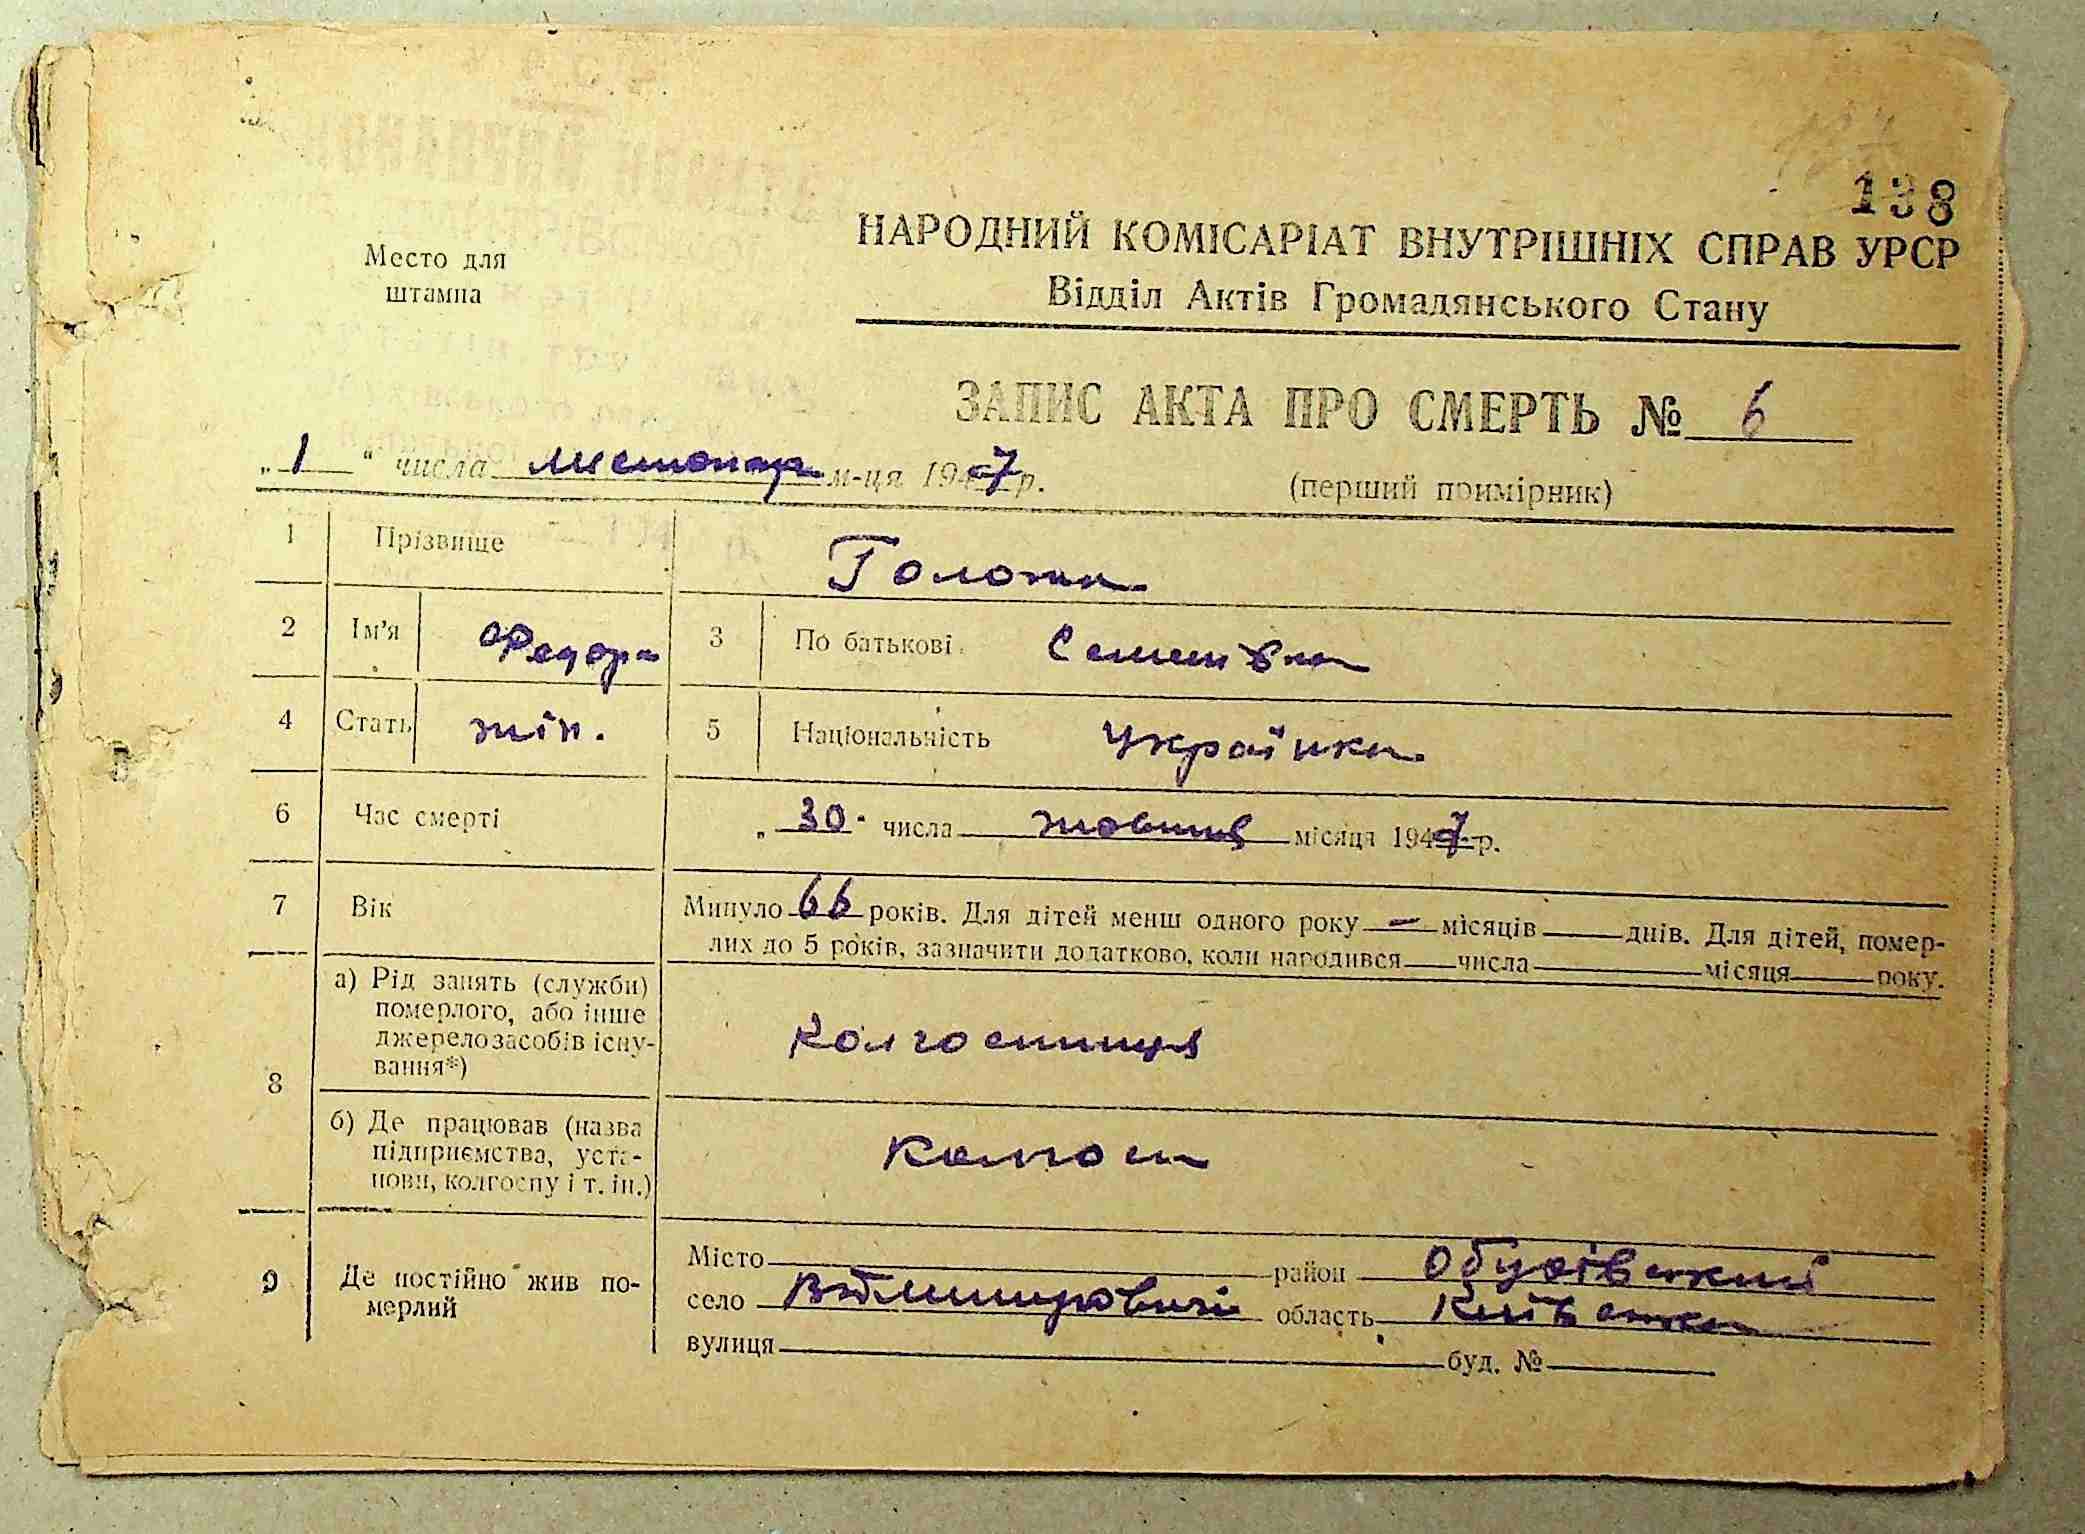 138
Место для
штампа
НАРОДНИЙ КОМІСАРІАТ ВНУТРІШНІХ СПРАВ УРСР
Відділ Актів Громадянського Стану
ЗАПИС АКТА ПРО СМЕРТЬ № 6
„ 1 “ числа листопада м-ця 1947 р. (перший примірник)
1 Прізвище
2 Ім'я Федора 3 По батькові Семенівна
4 Стать жін. 5 Національність українка
6 Час смерті „ 30 числа жовтня місяця 1947 р.
7 Вік Минуло 66 років. Для дітей менш одного року — місяців днів. Для дітей, помер-
лих до 5 років, зазначити додатково, коли народився числа місяця року.
8 а) Рід занять (служби)
померлого, або інше
джерело засобів існу-
вання*)
колгоспниця
б) Де працював (назва
підприємства, уста-
нови, колгоспу і т. ін.)
колгосп
9 Де постійно жив по-
мерлий
Місто район Обухівський
село область Київська
вулиця буд. №